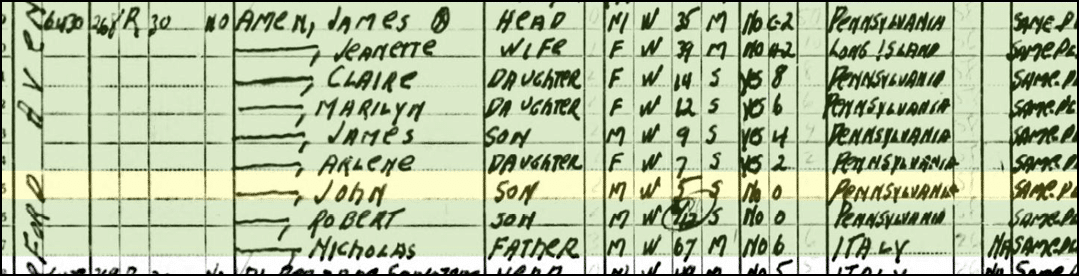 6430 268 R 30 NO AMEN, JAMES Ⓧ HEAD M W 35 M NO C-2 PENNSYLVANIA SAME PL
—, JEANETTE WIFE F W 39 M NO LONG ISLAND SAME PL
—, CLAIRE DAUGHTER F W 14 S YES 8 PENNSYLVANIA SAME PL
—, MARILYN DAUGHTER F W 12 S YES 6 PENNSYLVANIA SAME PL
—, JAMES SON M W 9 S YES 4 PENNSYLVANIA SAME PL
—, ARLENE DAUGHTER F W 7 S YES 2 PENNSYLVANIA SAME PL
—, JOHN SON M W 5 S NO 0 PENNSYLVANIA SAME PL
—, ROBERT SON M W S NO 0 PENNSYLVANIA SAME PL
—, NICHOLAS FATHER M W 67 M NO 6 ITALY NA SAME PL